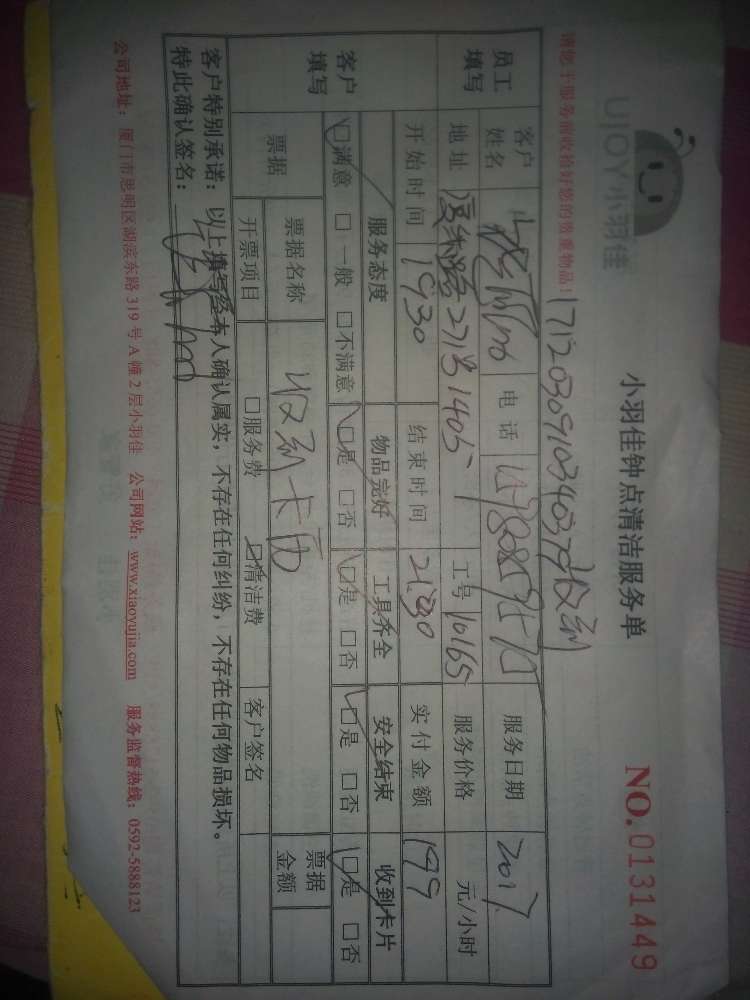 UJOY小羽佳
小羽佳钟点清洁服务单
NO.0131449
请您于服务前收拾好您的贵重物品！
1712030910340379收到
员工填写 客户姓名 电话 服务日期 2017.
地址 271号1405 工号 10165 服务价格 元/小时
开始时间 1930 结束时间 2130 实付金额 199
客户填写 服务态度 物品完好 工具齐全 安全结束 收到卡片
☑满意 □一般 □不满意 ☑是 □否 ☑是 □否 ☑是 □否 ☑是 □否
票据 票据名称 收到卡一百 票据金额
开票项目 □服务费 ☑清洁费 客户签名
客户特别承诺：以上填写经本人确认属实，不存在任何纠纷，不存在任何物品损坏。
特此确认签名：
公司地址：厦门市思明区湖滨东路319号A幢2层小羽佳 公司网站：www.xiaoyujia.com 服务监督热线：0592-5888123